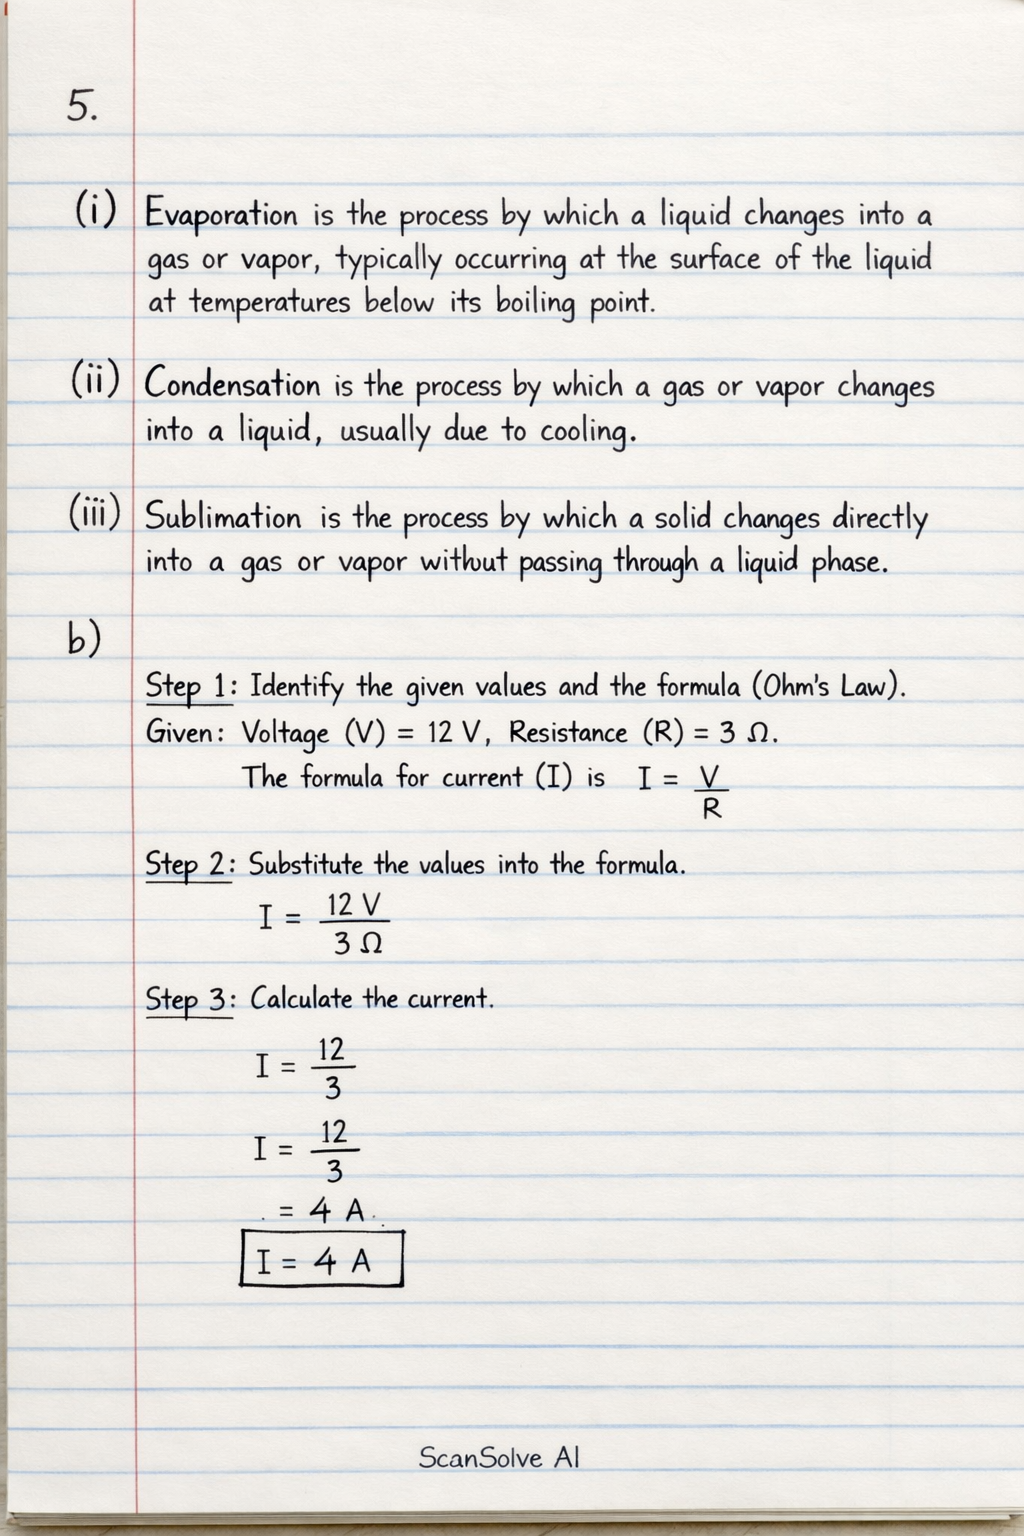 5.
(i) Evaporation is the process by which a liquid changes into a
gas or vapor, typically occurring at the surface of the liquid
at temperatures below its boiling point.
(ii) Condensation is the process by which a gas or vapor changes
into a liquid, usually due to cooling.
(iii) Sublimation is the process by which a solid changes directly
into a gas or vapor without passing through a liquid phase.
b)
Step 1: Identify the given values and the formula (Ohm's Law).
Given: Voltage (V) = 12 V, Resistance (R) = 3 Ω.
The formula for current (I) is I = V/R
Step 2: Substitute the values into the formula.
I = 12 V / 3 Ω
Step 3: Calculate the current.
I = 12/3
I = 12/3
= 4 A
I = 4 A
ScanSolve AI